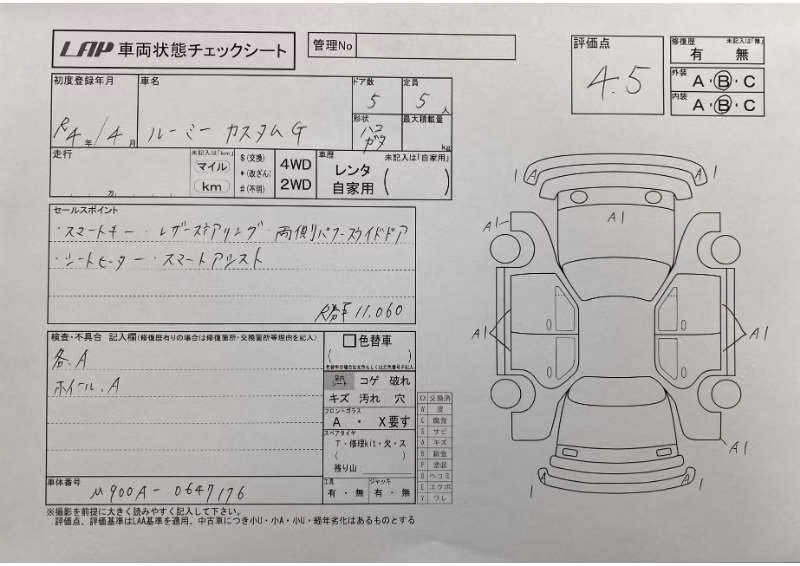 LAP 車両状態チェックシート
管理No
評価点
4.5
修復歴 未記入は「無」
有 無
外装 A・B・C
内装 A・B・C
初度登録年月
R4年/4月
車名
ルーミー カスタムG
ドア数
5
定員
5人
形状
ハコ
ガタ
最大積載量
kg
走行
万
未記入は「km」
マイル
km
$(交換)
*(改ざん)
#(不明)
4WD
2WD
車歴 未記入は「自家用」
レンタ
自家用
( )
セールスポイント
・スマートキー・レザーステアリング・両側パワースライドドア
・シートヒーター・スマートアシスト
11,060
検査・不具合 記入欄(修復歴有りの場合は修復箇所・交換箇所等理由を記入)
各.A
ホイール.A
□色替車
( )
コゲ 破れ
キズ 汚れ 穴
フロント・ガラス
A ・ X要す
スペアタイヤ
T・修理kit・欠・ス
( )
残り山
工具
有・無
ジャッキ
有・無
XX 交換済
W 波
C 腐食
S サビ
A キズ
B 鈑金
P 塗装
U ヘコミ
E エクボ
Y ワレ
車体番号
M900A-0647176
※撮影を前提に大きく読みやすく記入して下さい。
評価点、評価基準はLAA基準を適用、中古車につき小U・小A・小U・経年劣化はあるものとする
1 A A 1
A1
A1
A1
A1
A1
1 A A 1